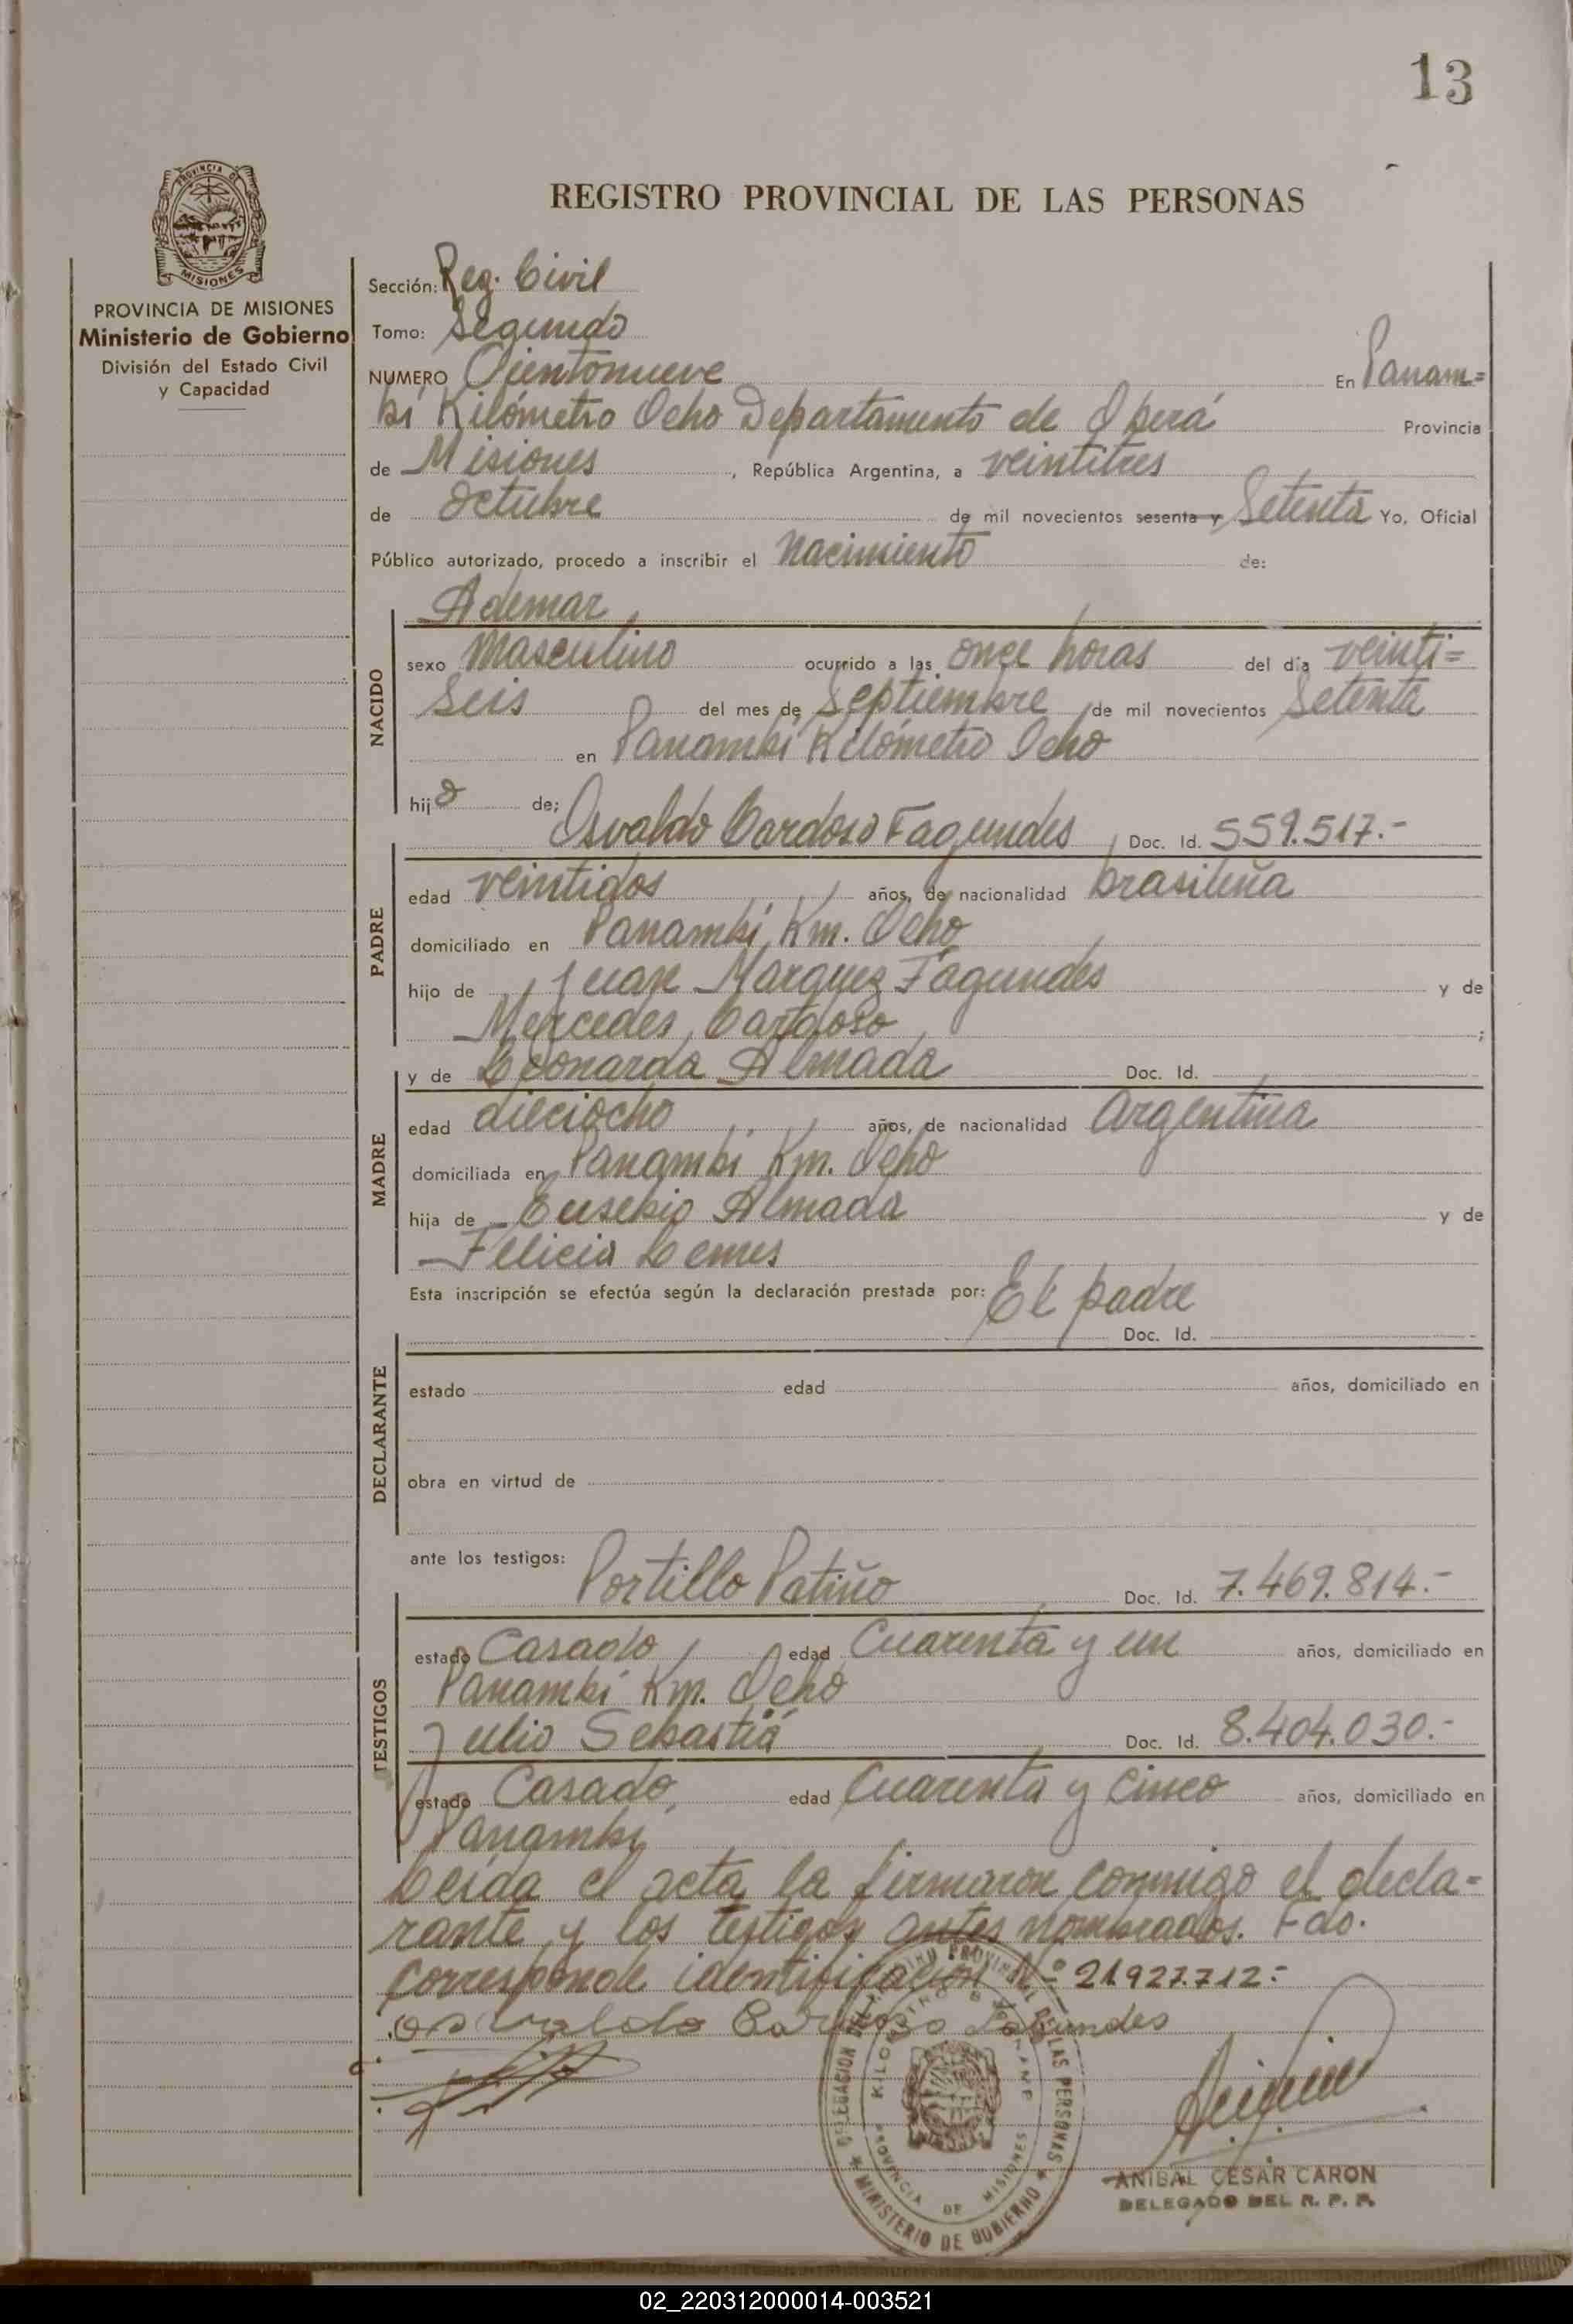 13
PROVINCIA DE
MISIONES
REGISTRO PROVINCIAL DE LAS PERSONAS
PROVINCIA DE MISIONES
Ministerio de Gobierno
División del Estado Civil
y Capacidad
Sección: Reg. Civil
Tomo: Segundo
NUMERO Cientonueve En Panam=
bí Kilómetro Ocho Departamento de Oberá Provincia
de Misiones, República Argentina, a veintitres
de octubre de mil novecientos sesenta y Setenta Yo, Oficial
Público autorizado, procedo a inscribir el nacimiento de:
Ademar
NACIDO
sexo Masculino ocurrido a las once horas del día veinti=
seis del mes de Septiembre de mil novecientos Setenta
en Panambí Kilómetro Ocho
hijo de: Osvaldo Cardoso Fagundes Doc. Id. 559.517.-
PADRE
edad veintidos años, de nacionalidad brasileña
domiciliado en Panambí, Km. Ocho
hijo de Juan Marquez Fagundes y de
Mercedes Cardoso ;
y de Leonarda Almada Doc. Id.
MADRE
edad dieciocho años, de nacionalidad Argentina
domiciliada en Panambí Km. Ocho
hija de Eusebio Almada y de
Felicia Lemes
Esta inscripción se efectúa según la declaración prestada por: El padre
Doc. Id.
DECLARANTE
estado edad años, domiciliado en
obra en virtud de
ante los testigos: Portillo Patiño Doc. Id. 7.469.814.-
TESTIGOS
estado Casado edad Cuarenta y un años, domiciliado en
Panambí Km. Ocho
Julio Sebastiá Doc. Id. 8.404.030.-
estado Casado, edad Cuarenta y Cinco años, domiciliado en
Panambí
Leída el acta, la firmaron conmigo el decla=
rante y los testigos antes nombrados. Fdo.
Corresponde identificación Nº 21.927.712.-
osvaldo Cardoso Fagundes
DELEGACION DEL REGISTRO PROVINCIAL DE LAS PERSONAS
MINISTERIO DE GOBIERNO
PROVINCIA DE MISIONES
ANIBAL CESAR CARON
DELEGADO DEL R. P. P.
02_220312000014-003521